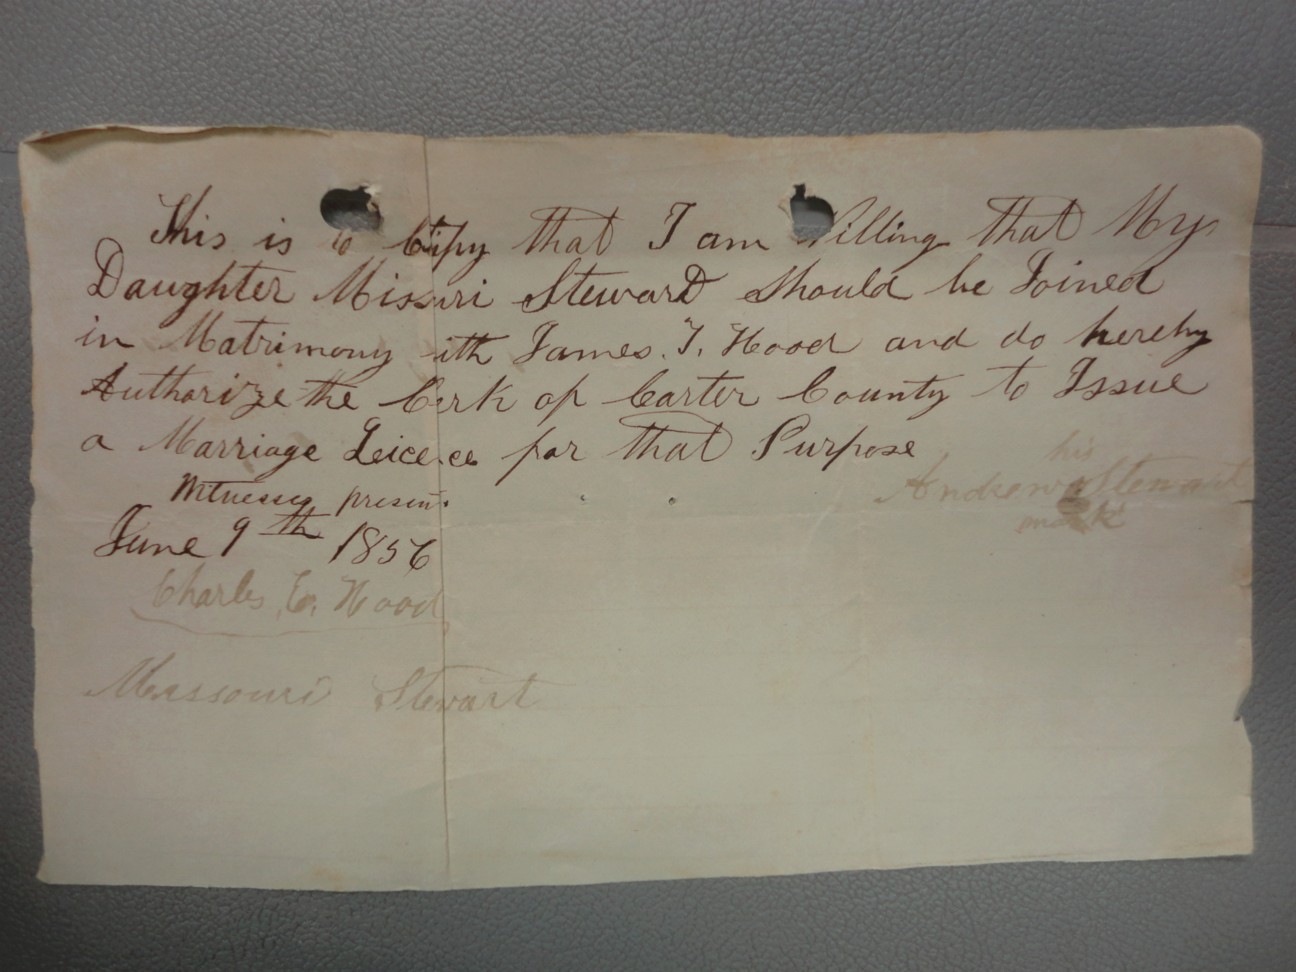 This is to Citify that I am Willing that My
Daughter Missuri Steward should be Joined
in Matrimony with James. T. Hood and do hereby
Authorize the Clerk of Carter County to Issue
a Marriage Leicence for that Purpose
his
Andrew x Stewart
mark
Witnesses present
June 9th 1856
Charles E. Hood
Missouri Stewart